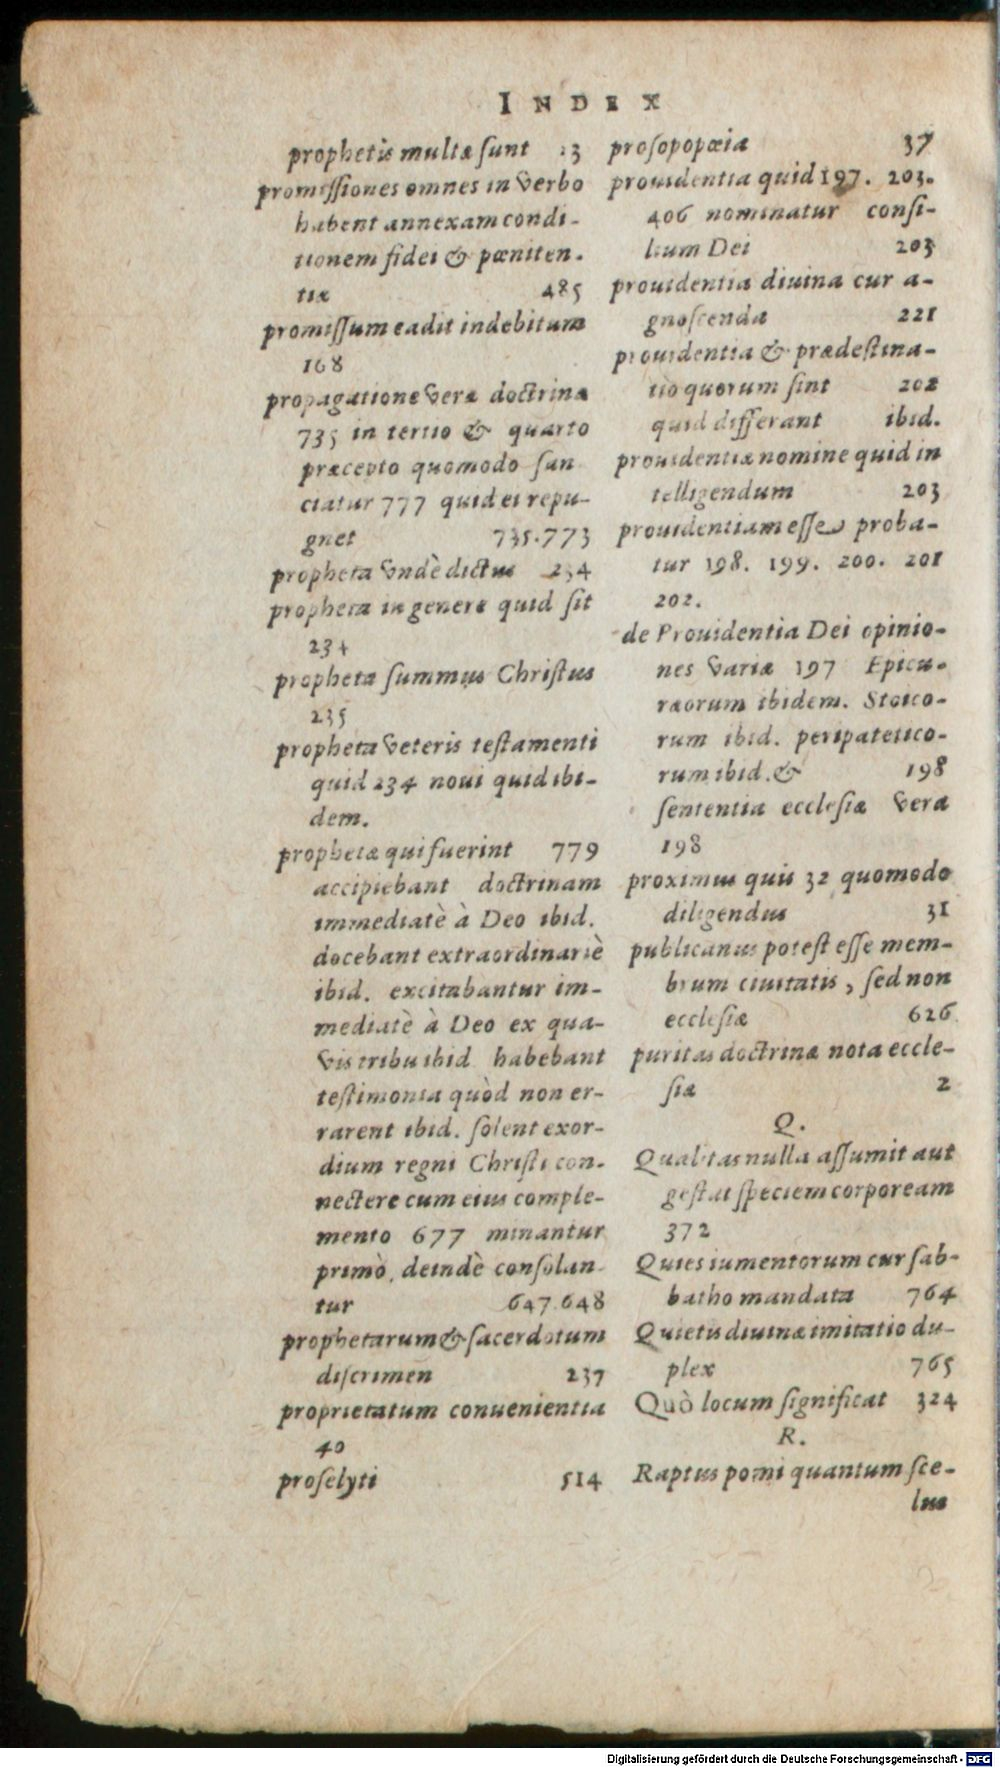 INDEX
prophetis multæ ſunt 13
promiſſiones omnes in verbo
habent annexam condi-
tionem fidei & pœniten-
tiæ 485
promiſſum cadit in debitum
168
propagatione veræ doctrinæ
735 in tertio & quarto
præcepto quomodo ſan
ciatur 777 quid ei repu-
gnet 735.773
propheta vndè dictus 234
propheta in genere quid ſit
234
propheta ſummus Chriſtus
235
propheta veteris teſtamenti
quid 234 noui quid ibi-
dem.
prophetæ qui fuerint 779
accipiebant doctrinam
immediatè à Deo ibid.
docebant extraordinariè
ibid. excitabantur im-
mediatè à Deo ex qua-
vis tribu ibid habebant
teſtimonia quòd non er-
rarent ibid. ſolent exor-
dium regni Chriſti con-
nectere cum eius comple-
mento 677 minantur
primò, deindè conſolan-
tur 647.648
prophetarum & ſacerdotum
diſcrimen 237
proprietatum conuenientia
40
proſelyti 514
proſopopœia 37
prouidentia quid 197. 203.
406 nominatur conſi-
lium Dei 203
prouidentia diuina cur a-
gnoſcenda 221
prouidentia & prædeſtina-
tio quorum ſint 202
quid differant ibid.
prouidentiæ nomine quid in
telligendum 203
prouidentiam eſſe proba-
tur 198. 199. 200. 201
202.
de Prouidentia Dei opinio-
nes variæ 197 Epicu-
ræorum ibidem. Stoico-
rum ibid. peripatetico-
rum ibid. & 198
ſententia eccleſiæ vera
198
proximus quis 32 quomodo
diligendus 31
publicanus poteſt eſſe mem-
brum ciuitatis, ſed non
eccleſiæ 626
puritas doctrinæ nota eccle-
ſiæ 2
Q.
Qualitas nulla aſſumit aut
geſtat ſpeciem corpoream
372
Quies iumentorum cur ſab-
batho mandata 764
Quietis diuinæ imitatio du-
plex 765
Quò locum ſignificat 324
R.
Raptus pomi quantum ſce-
lus
Digitalisierung gefördert durch die Deutsche Forschungsgemeinschaft - DFG